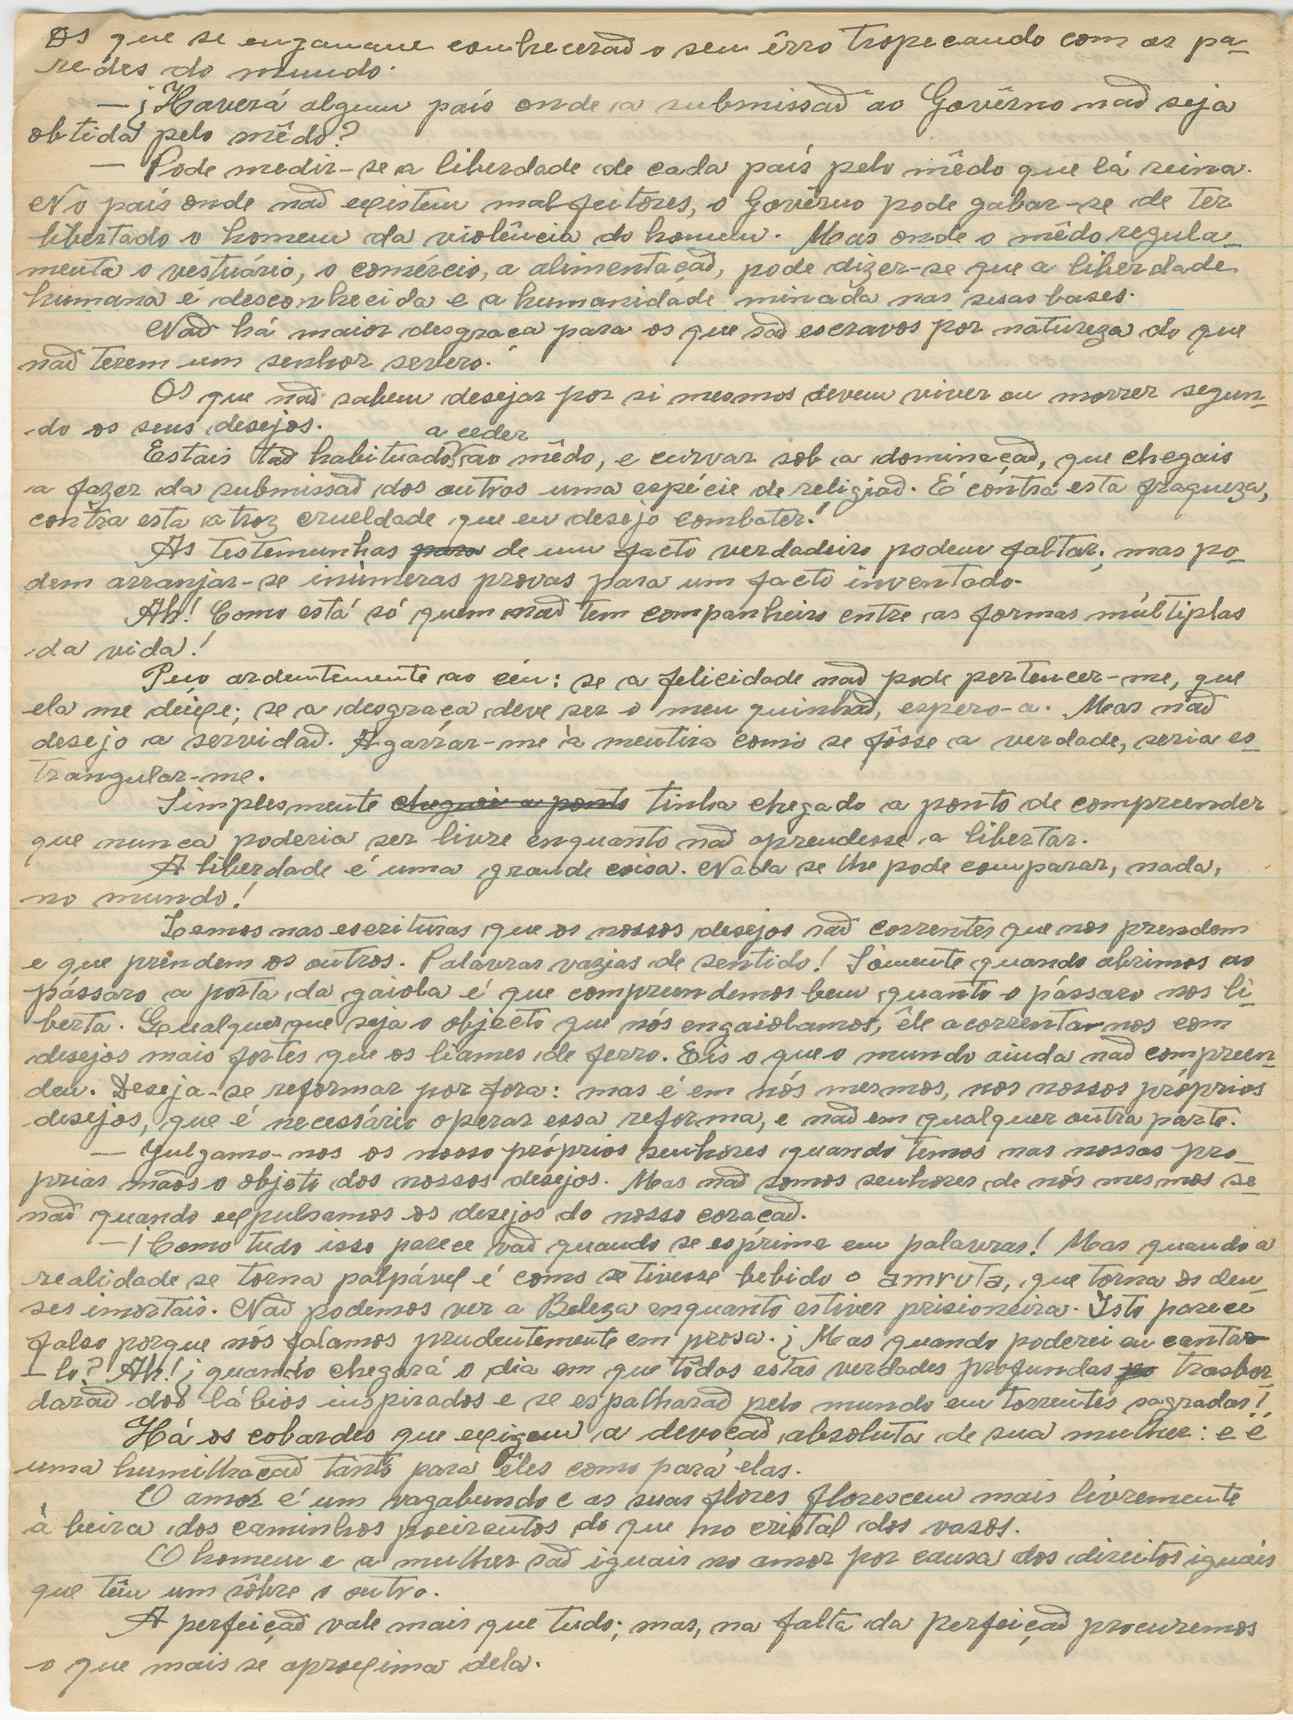 Os que se enganam conhecerão o seu êrro tropeçando com as pa-
redes do mundo.
— ¡Haverá algum país onde a submissão ao Govêrno não seja
obtida pelo mêdo?
— Pode medir-se a liberdade de cada país pelo mêdo que lá reina.
No país onde não existem malfeitores, o Govêrno pode gabar-se de ter
libertado o homem da violência do homem. Mas onde o mêdo regula-
menta o vestuário, o comércio, a alimentação, pode dizer-se que a liberdade
humana é desconhecida e a humanidade minada nas suas bases.
Não há maior desgraça para os que são escravos por natureza do que
não terem um senhor severo.
Os que não sabem desejar por si mesmos devem viver ou morrer segun-
do os seus desejos.
a ceder
Estais tão habituados ao mêdo, e curvar sob a dominação, que chegais
a fazer da submissão dos outros uma espécie de religião. É contra esta fraqueza,
contra esta atroz crueldade que eu desejo combater!
As testemunhas para de um facto verdadeiro podem faltar; mas po-
dem arranjar-se inúmeras provas para um facto inventado.
Ah! Como está só quem não tem companheiro entre as formas múltiplas
da vida!
Peço ardentemente ao céu: se a felicidade não pode pertencer-me, que
ela me deixe; se a desgraça deve ser o meu quinhão, espero-a. Mas não
desejo a servidão. Agarrar-me à mentira como se fôsse a verdade, seria es-
trangular-me.
Simplesmente cheguei a ponto tinha chegado a ponto de compreender
que nunca poderia ser livre enquanto não aprendesse a libertar.
A liberdade é uma grande coisa. Nada se lhe pode comparar, nada,
no mundo!
Lemos nas escrituras que os nossos desejos são correntes que nos prendem
e que prendem os outros. Palavras vazias de sentido! Sòmente quando abrimos ao
pássaro a porta da gaiola é que compreendemos bem quanto o pássaro nos li-
berta. Qualquer que seja o objecto que nós engaiolamos, êle acorrenta-nos com
desejos mais fortes que os liames de ferro. Eis o que o mundo ainda não compreen-
deu. Deseja-se reformar por fora: mas é em nós mesmos, nos nossos próprios
desejos, que é necessário operar essa reforma, e não em qualquer outra parte.
— Julgamo-nos os nosso próprios senhores quando temos nas nossas pró-
prias mãos o objeto dos nossos desejos. Mas não somos senhores de nós mesmos se-
não quando expulsamos os desejos do nosso coração.
— ¡Como tudo isso parece vão quando se esprime em palavras! Mas quando a
realidade se torna palpável é como se tivesse bebido o amruta, que torna os deu-
ses imortais. Não podemos ver a Beleza enquanto estiver prisioneira. Isto parece
falso porque nós falamos prudentemente em prosa. ¡Mas quando poderei eu cantá-
-lo? Ah! ¡quando chegará o dia em que todas estas verdades profundas po trasbor-
darão dos lábios inspirados e se espalharão pelo mundo em torrentes sagradas!
Há os cobardes que exigem a devoção absoluta de sua mulher: e é
uma humilhação tanto para êles como para elas.
O amor é um vagabundo e as suas flores florescem mais livremente
à beira dos caminhos poeirentos do que no cristal dos vasos.
O homem e a mulher são iguais no amor por causa dos direitos iguais
que têm um sôbre o outro.
A perfeição vale mais que tudo; mas, na falta da perfeição procuremos
o que mais se aproxima dela.